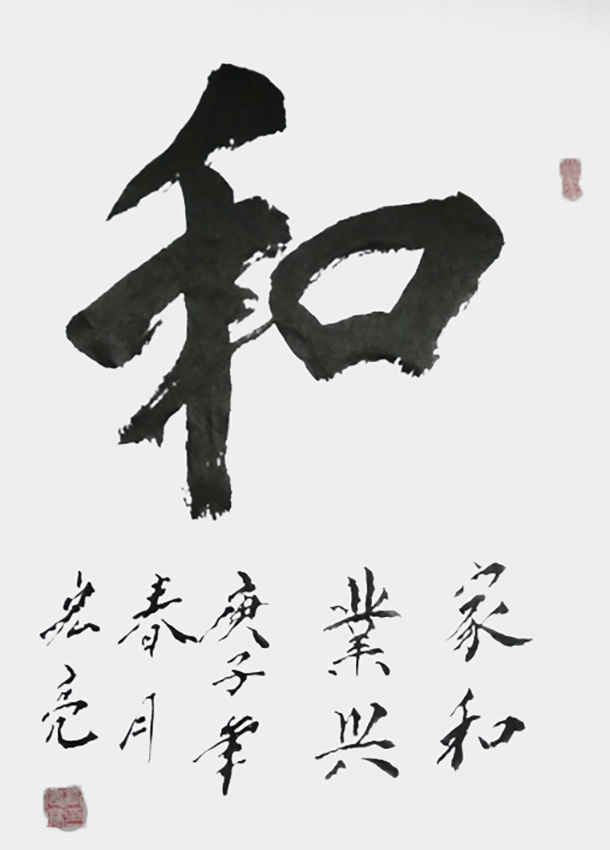 和
家和
業兴
庚子年
春月
宏亮